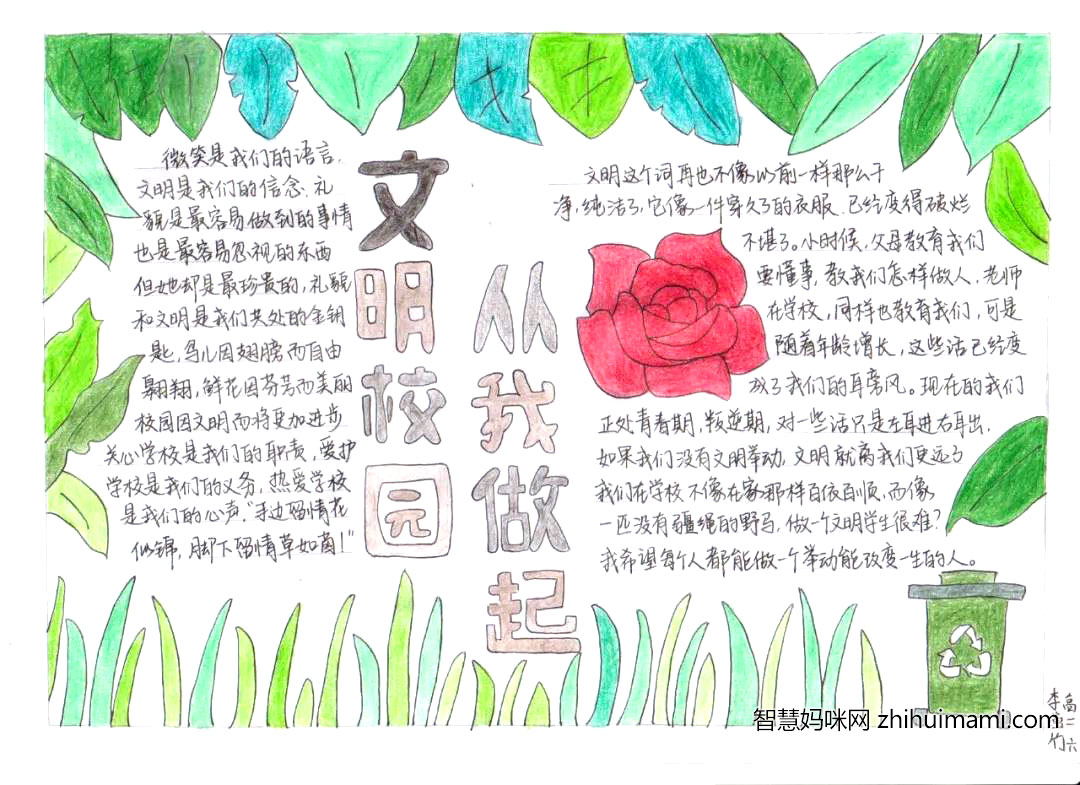 微笑是我们的语言,
文明是我们的信念、礼
貌是最容易做到的事情
也是最容易忽视的东西
但她却是最珍贵的,礼貌
和文明是我们共处的金钥
匙,鸟儿因翅膀而自由
翱翔,鲜花因芬芳而美丽
校园因文明而将更加进步
关心学校是我们的职责,爱护
学校是我们的义务,热爱学校
是我们的心声。“手边留情花
似锦,脚下留情草如茵!”
文明校园
从我做起
文明这个词再也不像以前一样那么干
净,纯洁了,它像一件穿久了的衣服.已经变得破烂
不堪了。小时候,父母教育我们
要懂事,教我们怎样做人.老师
在学校,同样也教育我们,可是
随着年龄增长,这些话已经变
成了我们的耳旁风。现在的我们
正处青春期,叛逆期,对一些话只是左耳进右耳出,
如果我们没有文明举动,文明就离我们更远了
我们在学校不像在家那样百依百顺,而像
一匹没有疆绳的野马,做一个文明学生很难?
我希望每个人都能做一个举动能改变一生的人。
高二六
智慧妈咪网 zhihuimami.com